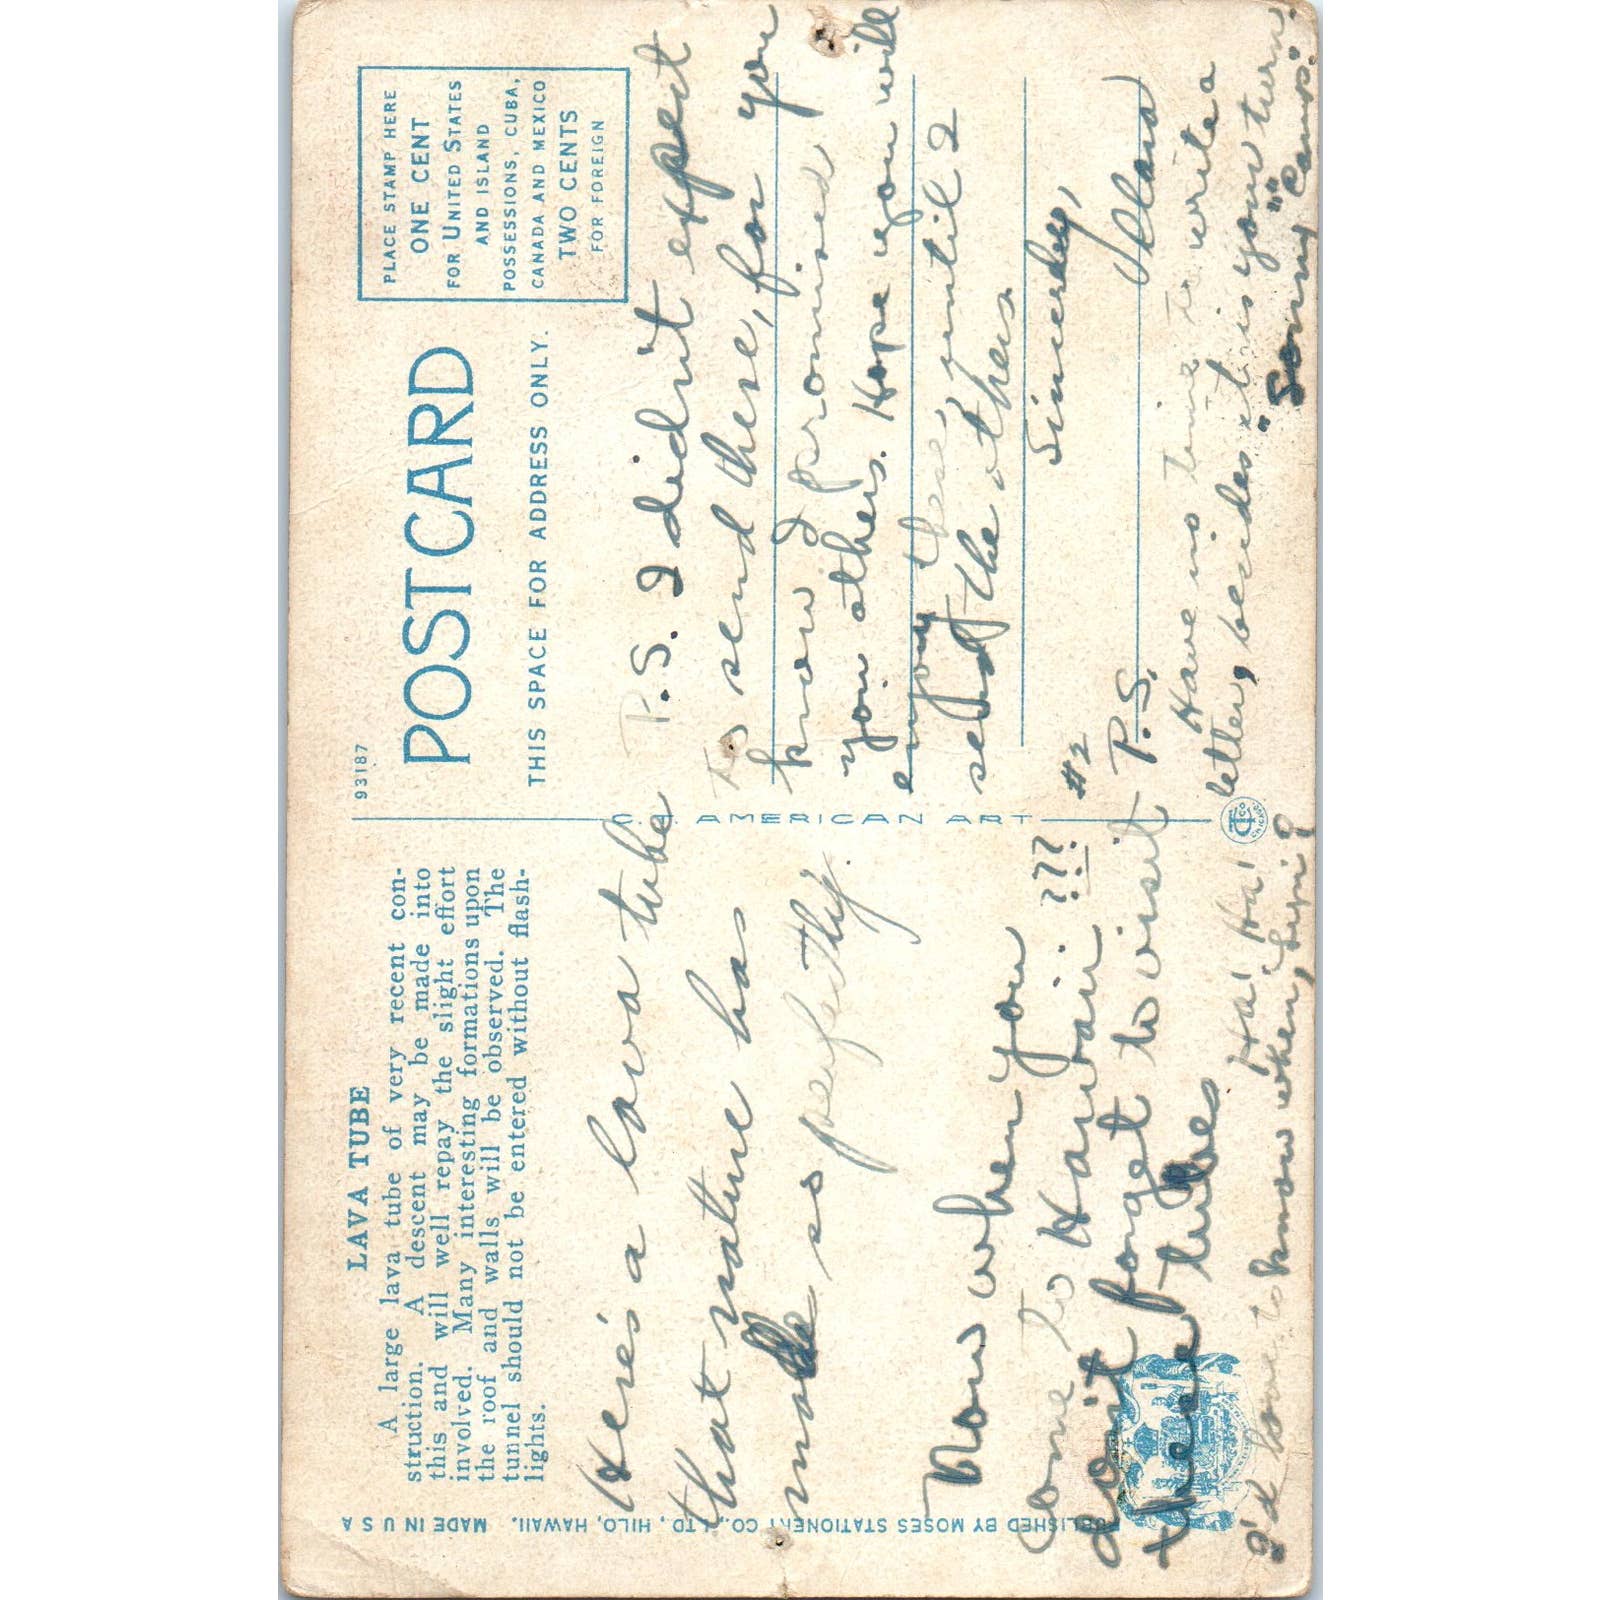 LAVA TUBE
A large lava tube of very recent con-
struction. A descent may be made into
this and will well repay the slight effort
involved. Many interesting formations upon
the roof and walls will be observed. The
tunnel should not be entered without flash-
lights.
Here's a lava tube
that nature has
made so perfectly.
Now when you
come to Hawaii ???
don't forget to visit
these tubes
Ha! Ha! Ha!
I'd love to know when,
MADE IN U S A
PUBLISHED BY MOSES STATIONERY CO., LTD, HILO, HAWAII.
C. T. AMERICAN ART
93187
POST CARD
THIS SPACE FOR ADDRESS ONLY.
PLACE STAMP HERE
ONE CENT
FOR UNITED STATES
AND ISLAND
POSSESSIONS, CUBA,
CANADA AND MEXICO
TWO CENTS
FOR FOREIGN
P.S. I didn't expect
to send these, for you
know I promised
you others. Hope you will
enjoy these, until I
send the others.
Sincerely,
#2 P.S.
Have no time to write a
letter, besides it is your turn.